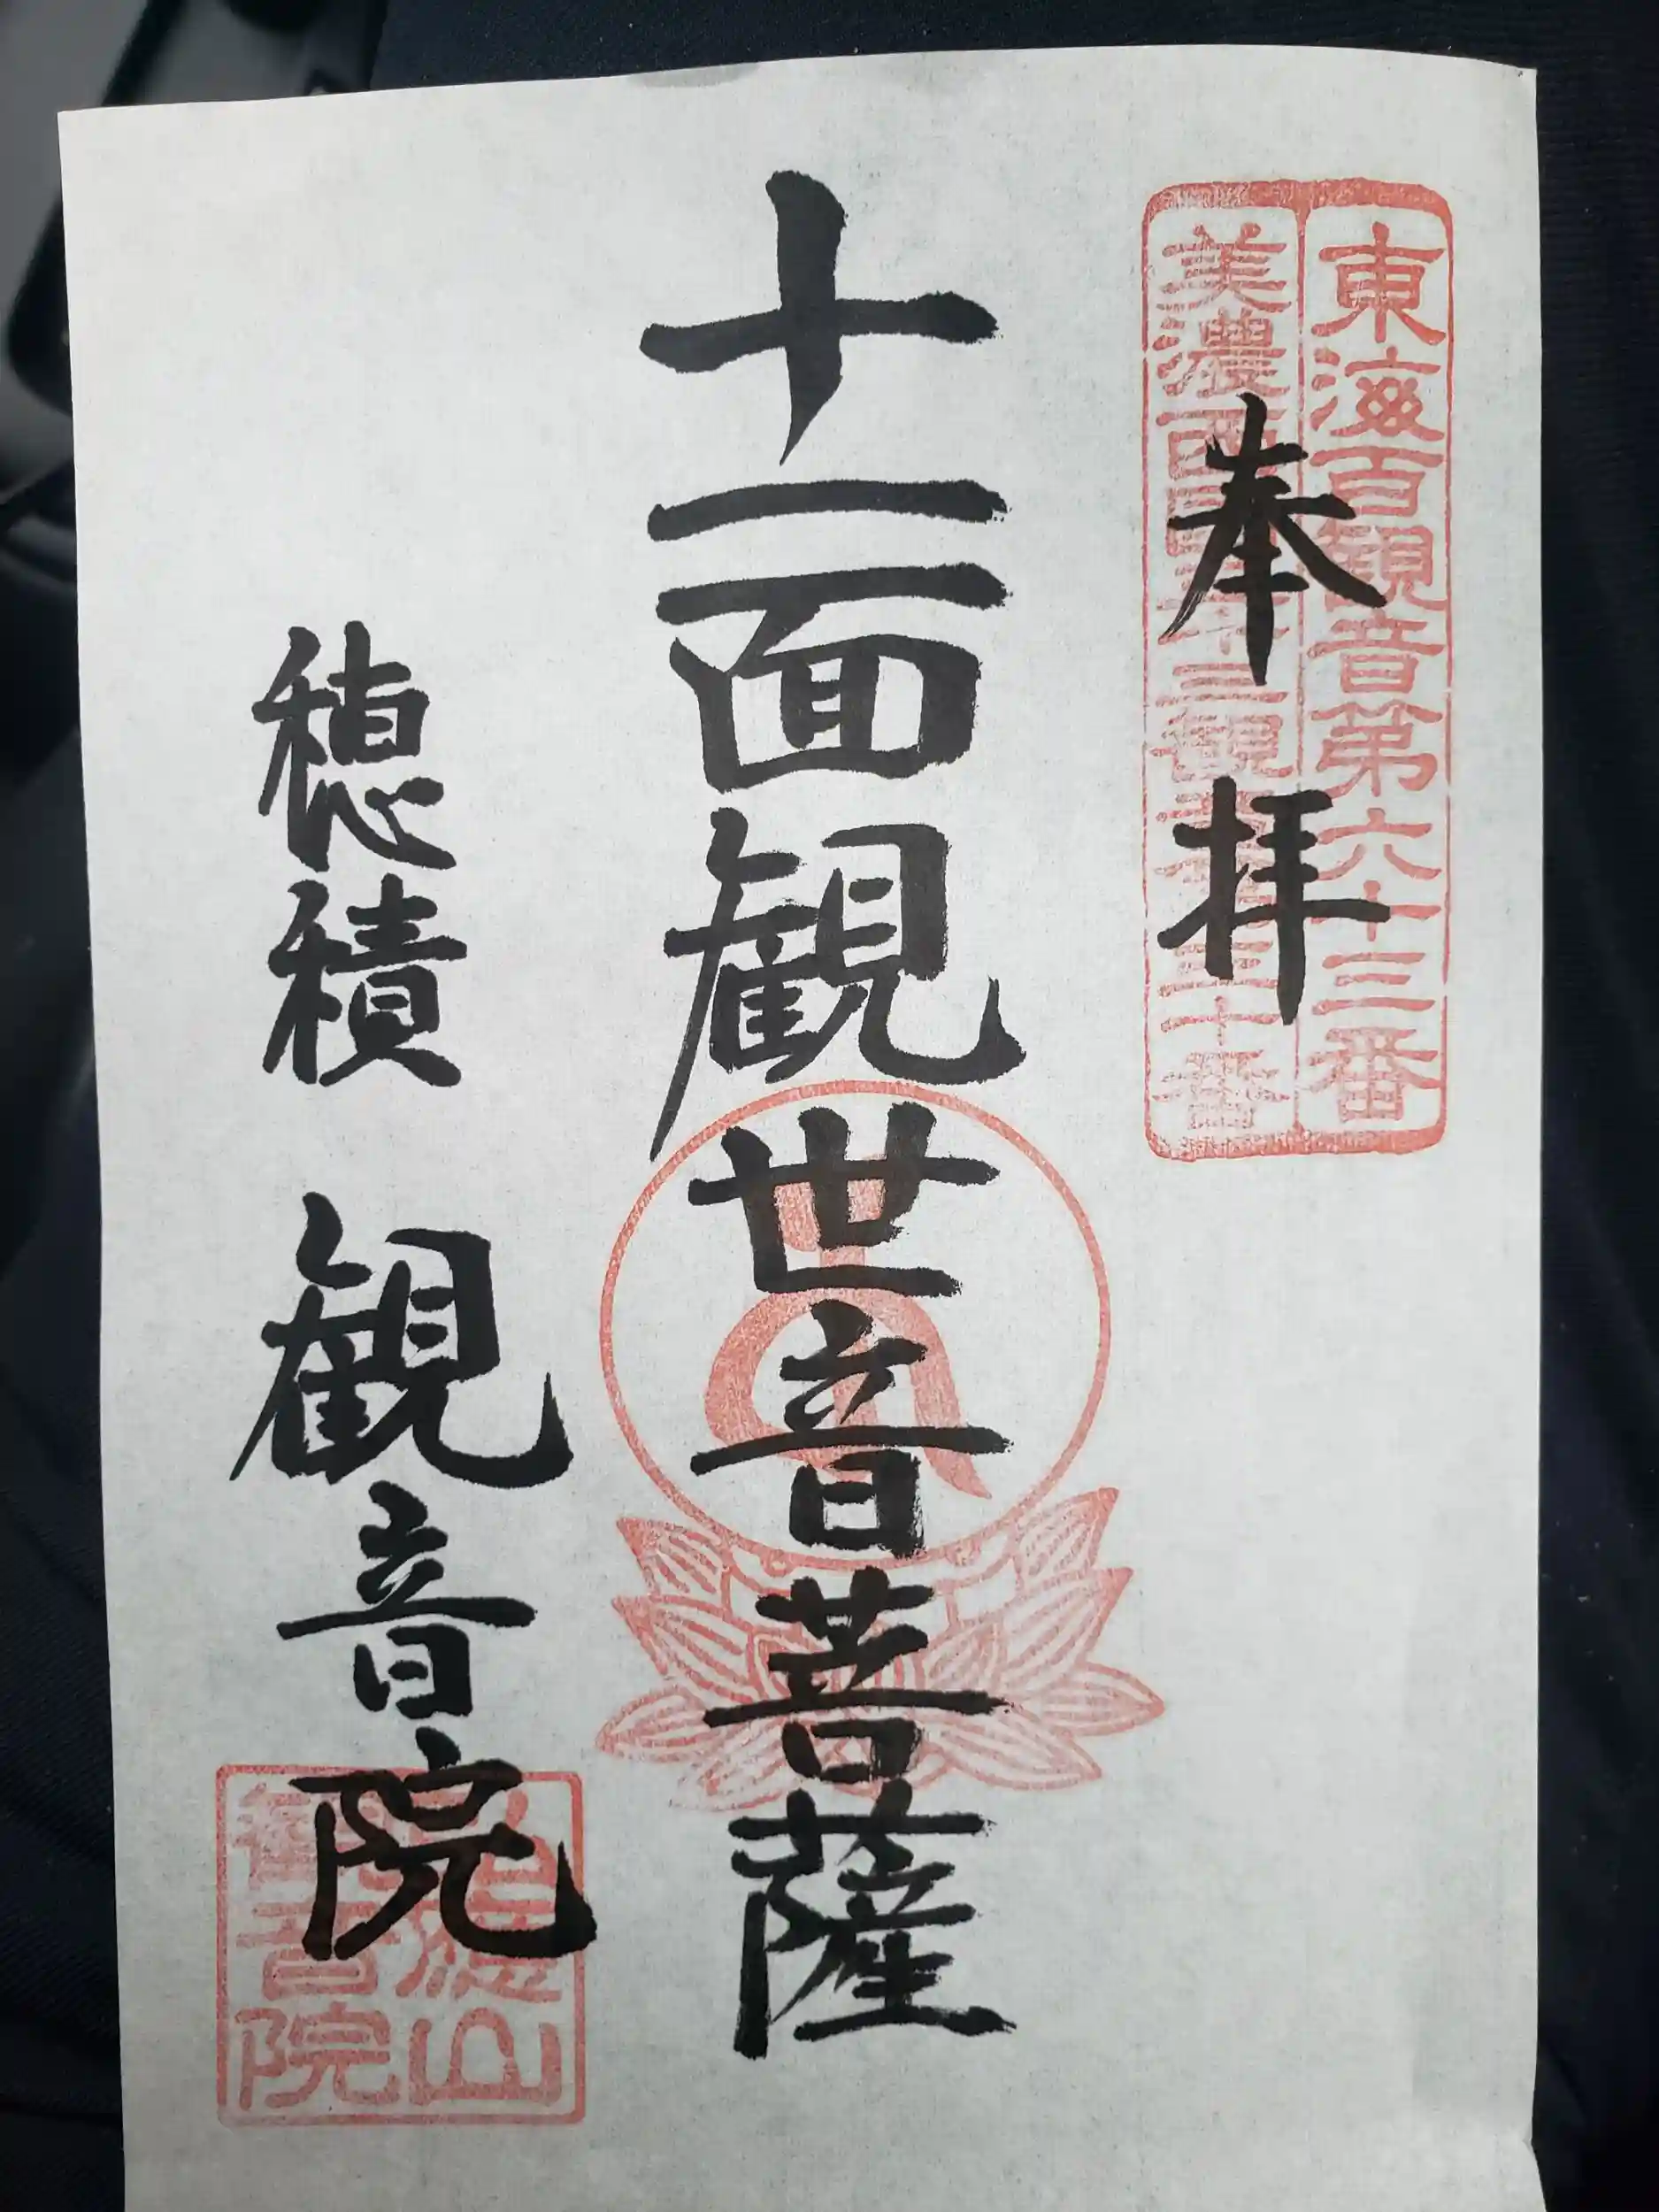 東海百観音第六十三番
美濃西国三十三観音第三十番
奉拝
十一面観世音菩薩
穂積 観音院
観音院